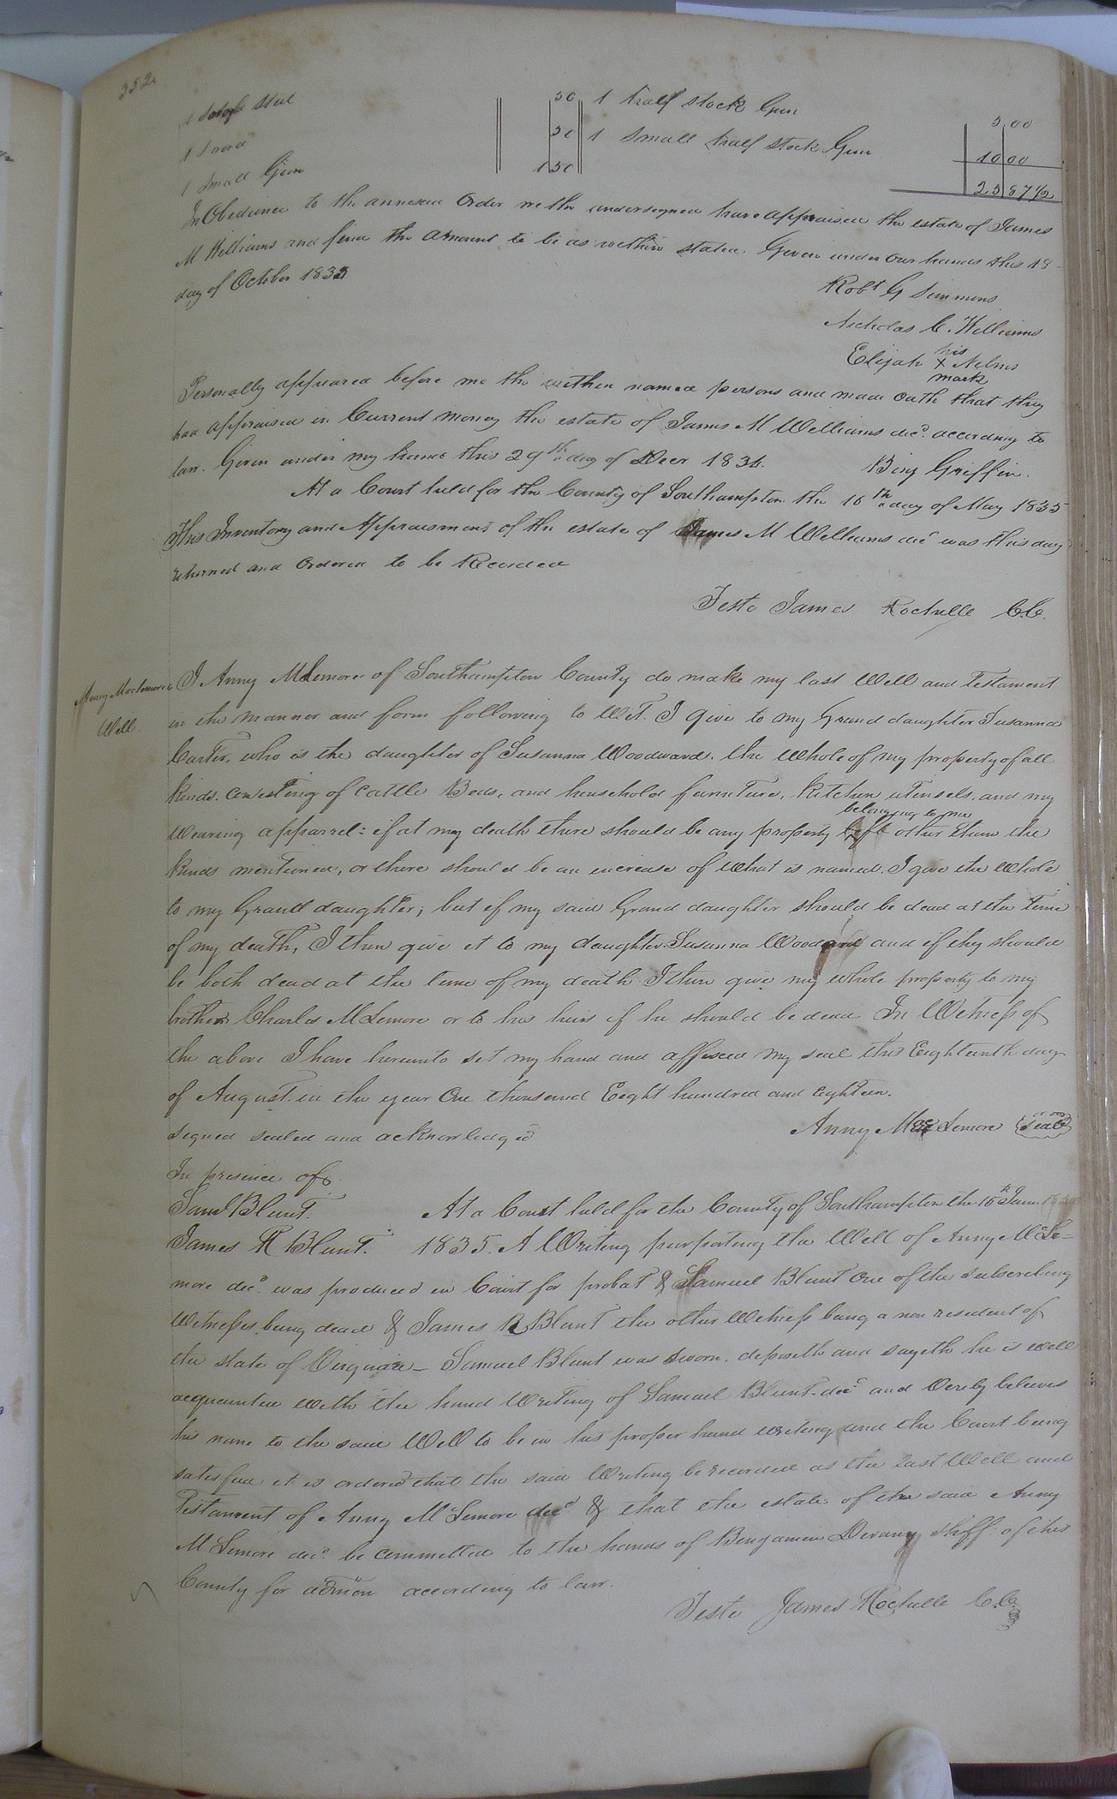 352
1 Small Gun 1 50
50 1 half stock Gun 5 00
50 1 Small half stock Gun 10 00
25 87 1/2
In Obedience to the annexed Order we the undersigned have appraised the estate of James
M Williams and find the amount to be as within stated. Given under our hands this 18
day of October 1833
Robt G Simmons
Nicholas C. Williams
Elijah his X mark Nelms
Personally appeared before me the within named persons and made oath that they
had appraised in Current money the estate of James M Williams decd. according to
law. Given under my hand this 29th day of Decr 1834. Benj Griffin.
At a Court held for the County of Southampton the 18th day of May 1835
This Inventory and Appraisment of the estate of James M Williams decd was this day
returned and Ordered to be Recorded
Teste James Rochelle C.C.
Anny Maclemore
Will.
I Anny McLemore of Southampton County do make my last Will and Testament
in the manner and form following to Wit. I give to my Grand daughter Susanna
Carter, who is the daughter of Susanna Woodward. the whole of my property of all
kinds. consisting of Cattle Beds, and household furniture, Kitchen utensels, and my
wearing apparrel: if at my death there should be any property left belonging to me other than the
kinds mentioned, or there should be an increase of what is named. I give the whole
to my Grand daughter; but if my said Grand daughter should be dead at the time
of my death, I then give it to my daughter Susanna Woodard and if they should
be both dead at the time of my death I then give my whole property to my
brother Charles McLemore or to his heirs if he should be dead In Witness of
the above I have hereunto set my hand and affixed my seal this Eighteenth day
of August in the year One thousand Eight hundred and Eighteen.
Signed sealed and acknowledged Anny Mac Lemore Seal
In presence of
Saml Blunt. At a Court held for the County of Southampton the 15th June
James R Blunt. 1835. A Writing purporting the Will of Anny McLe-
more decd. was produced in Court for probat & Samuel Blunt One of the subscribing
Witnesses being dead & James R Blunt the other Witness being a non resident of
the state of Virginia - Samuel Blunt was sworn. deposeth and sayeth he is well
acquainted with the hand Writing of Samuel Blunt decd and verely believes
his name to the said Will to be in his proper hand writing and the Court being
satisfied it is ordered that the said Writing be recorded as the last Will and
Testament of Anny McLemore decd & that the estate of the said Anny
McLemore decd. be committed to the hands of Benjamin Devany Shff. of this
County for admon according to law.
Teste James Rochelle C.C.